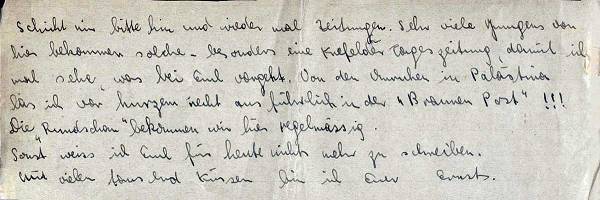 Schickt mir bitte hin und wieder mal Zeitungen. Sehr viele Jungens von
hier bekommen solche - besonders eine Krefelder Tageszeitung, damit ich
mal sehe, was bei Euch vorgeht. Von den Unruhen in Palästina
las ich vor kurzem recht ausführlich in der "Braunen Post" !!!
Die "Rundschau" bekommen wir hier regelmässig.
Sonst weiss ich Euch für heute nichts mehr zu schreiben.
Mit vielen tausend Küssen bin ich Euer Ernst.